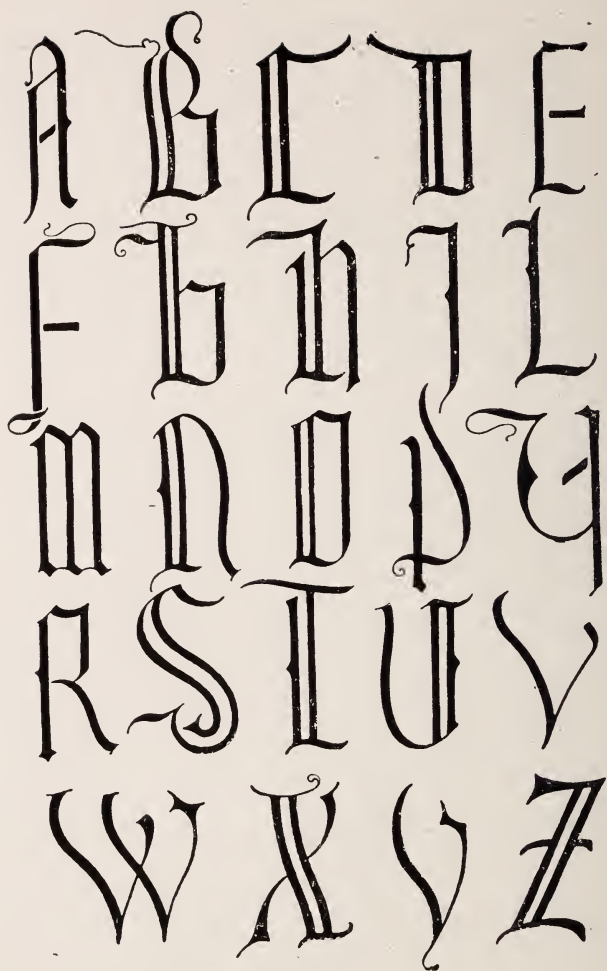 A B C D E
F G H I L
M N O P Q
R S T U V
W X Y Z